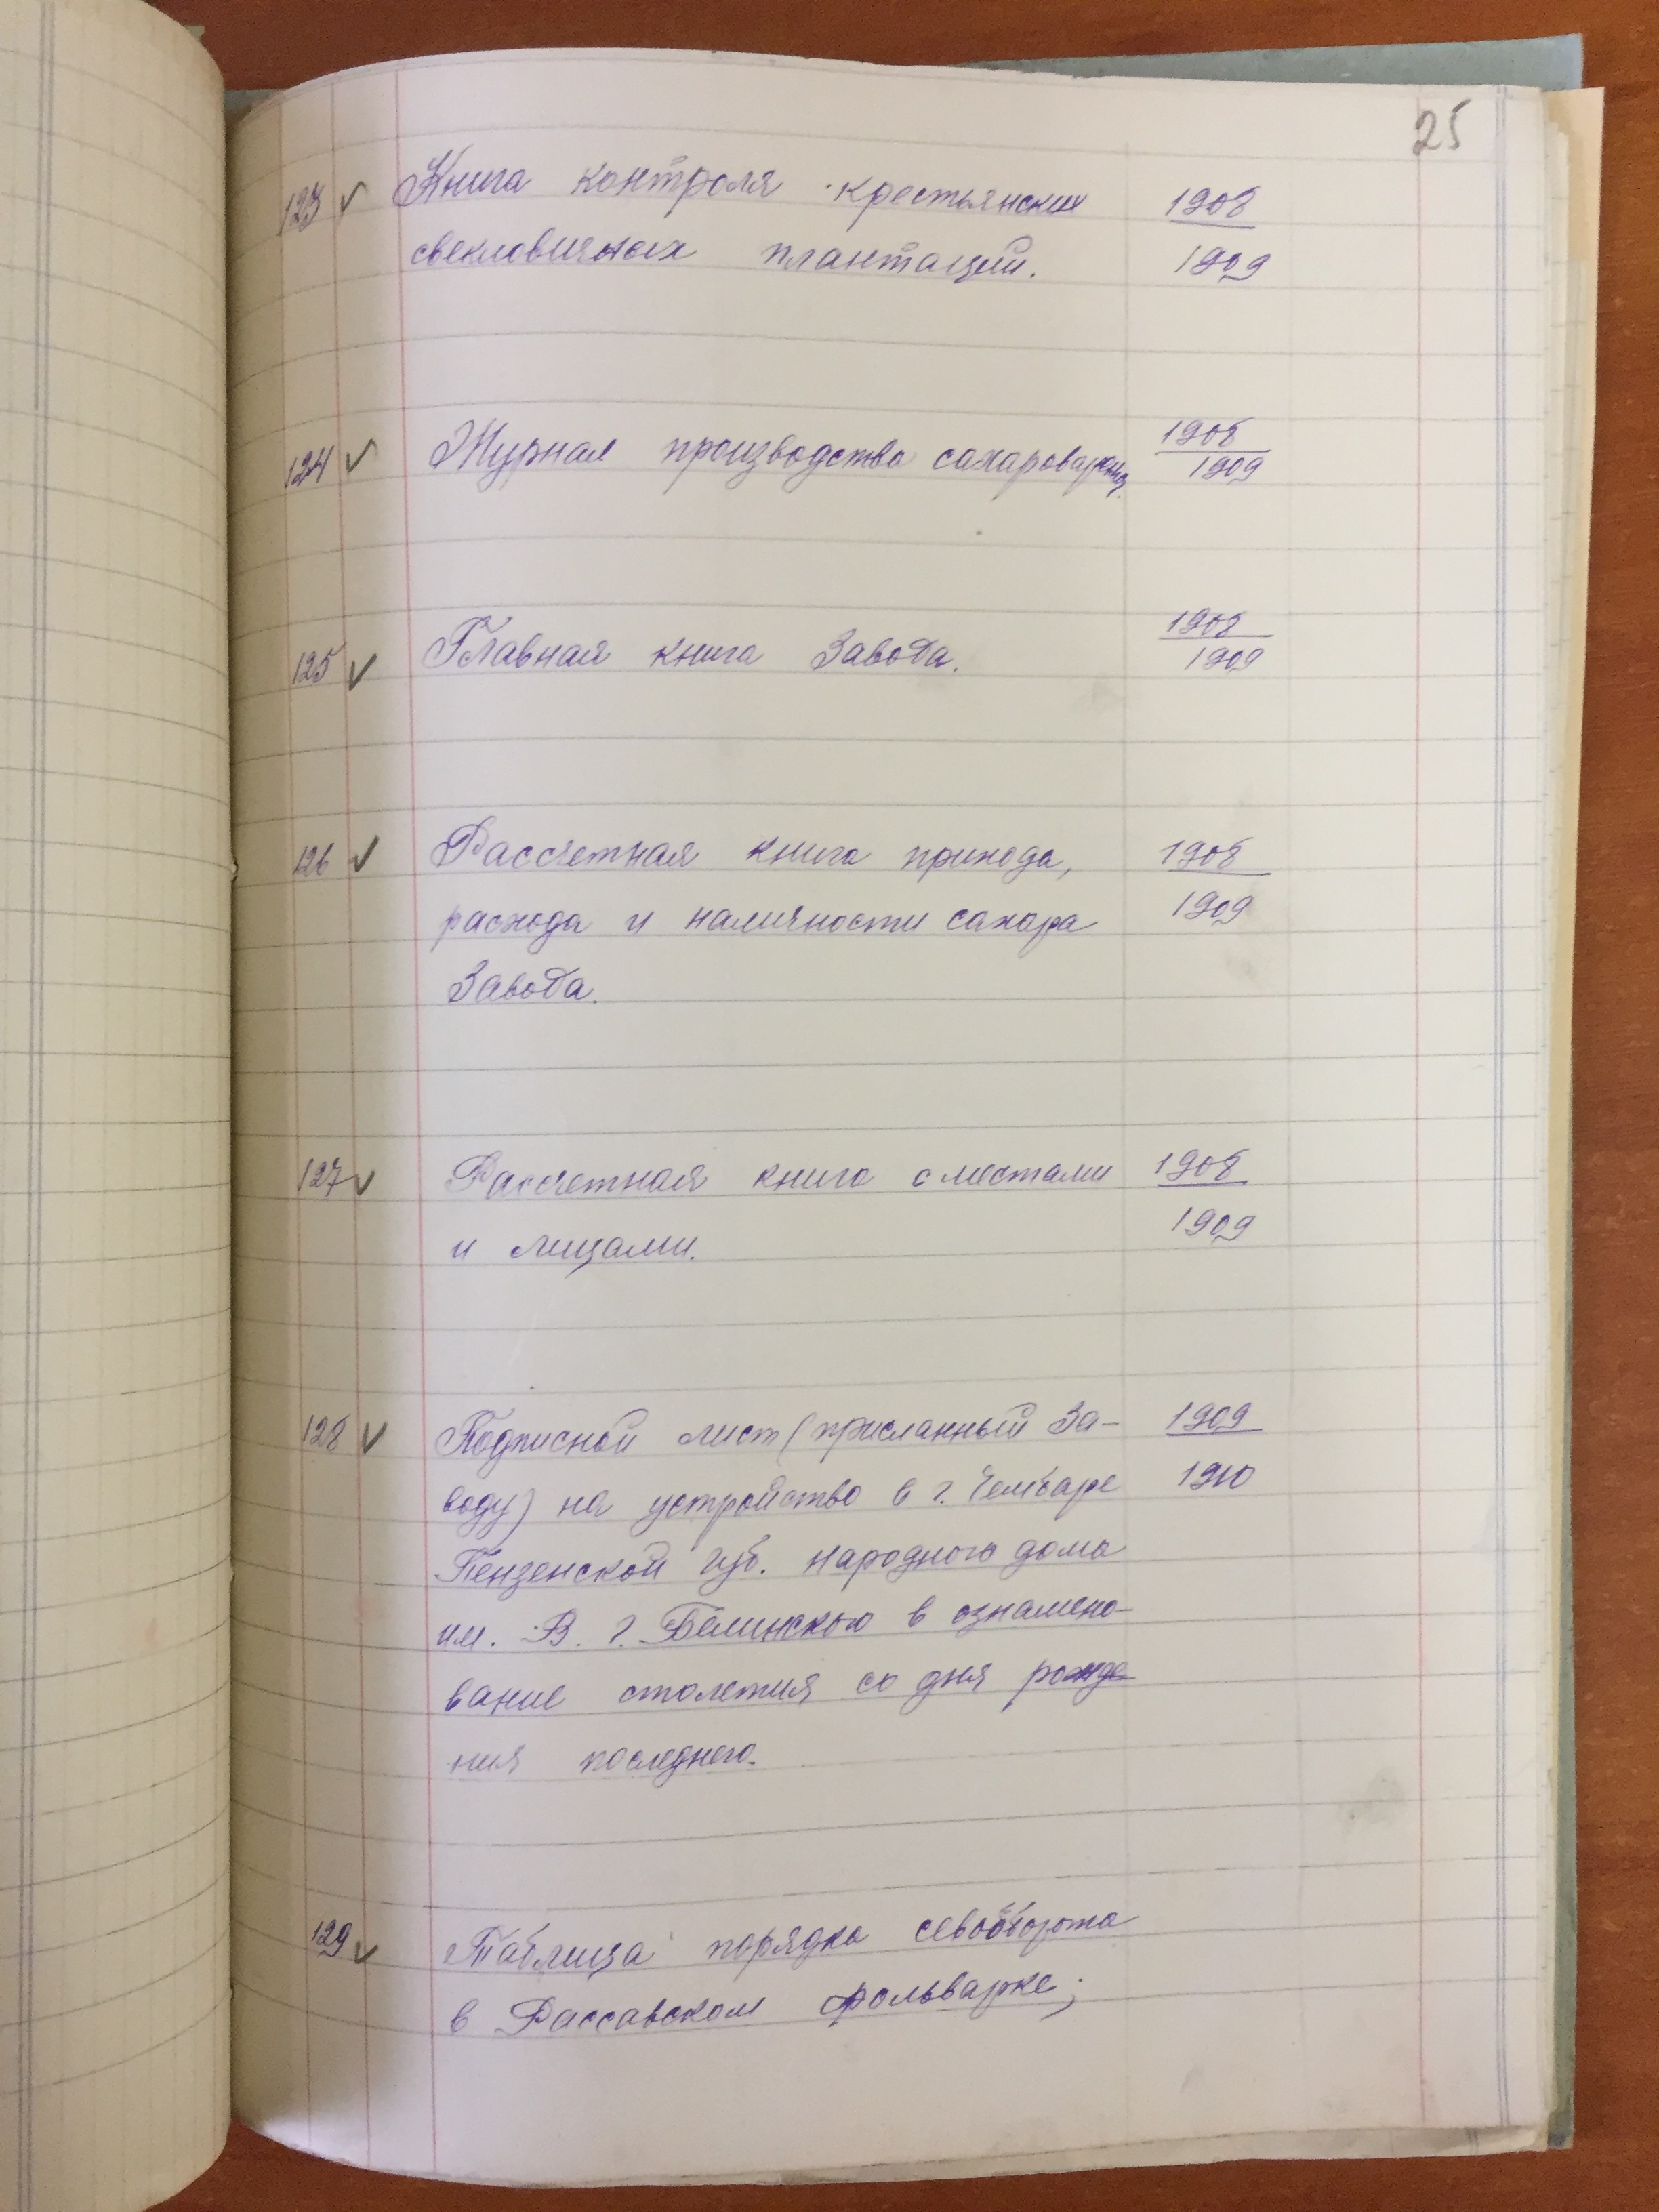 25
123 ✓ Книга контроля крестьянских 1908
свекловичных плантаций. 1909
124 ✓ Журнал производства сахароварения. 1908
1909
125 ✓ Главная книга Завода. 1908
1909
126 ✓ Рассчетная книга прихода, 1908
расхода и наличности сахара 1909
Завода.
127 ✓ Рассчетная книга с местами 1908
и лицами. 1909
128 ✓ Подписной лист (присланный За- 1909
воду) на устройство в г. Чембаре 1910
Пензенской губ. народного дома
им. В. Г. Белинского в ознамено-
вание столетия со дня рожде
ния последнего.
129 ✓ Таблица порядка севооборота
в Рассавском фольварке;